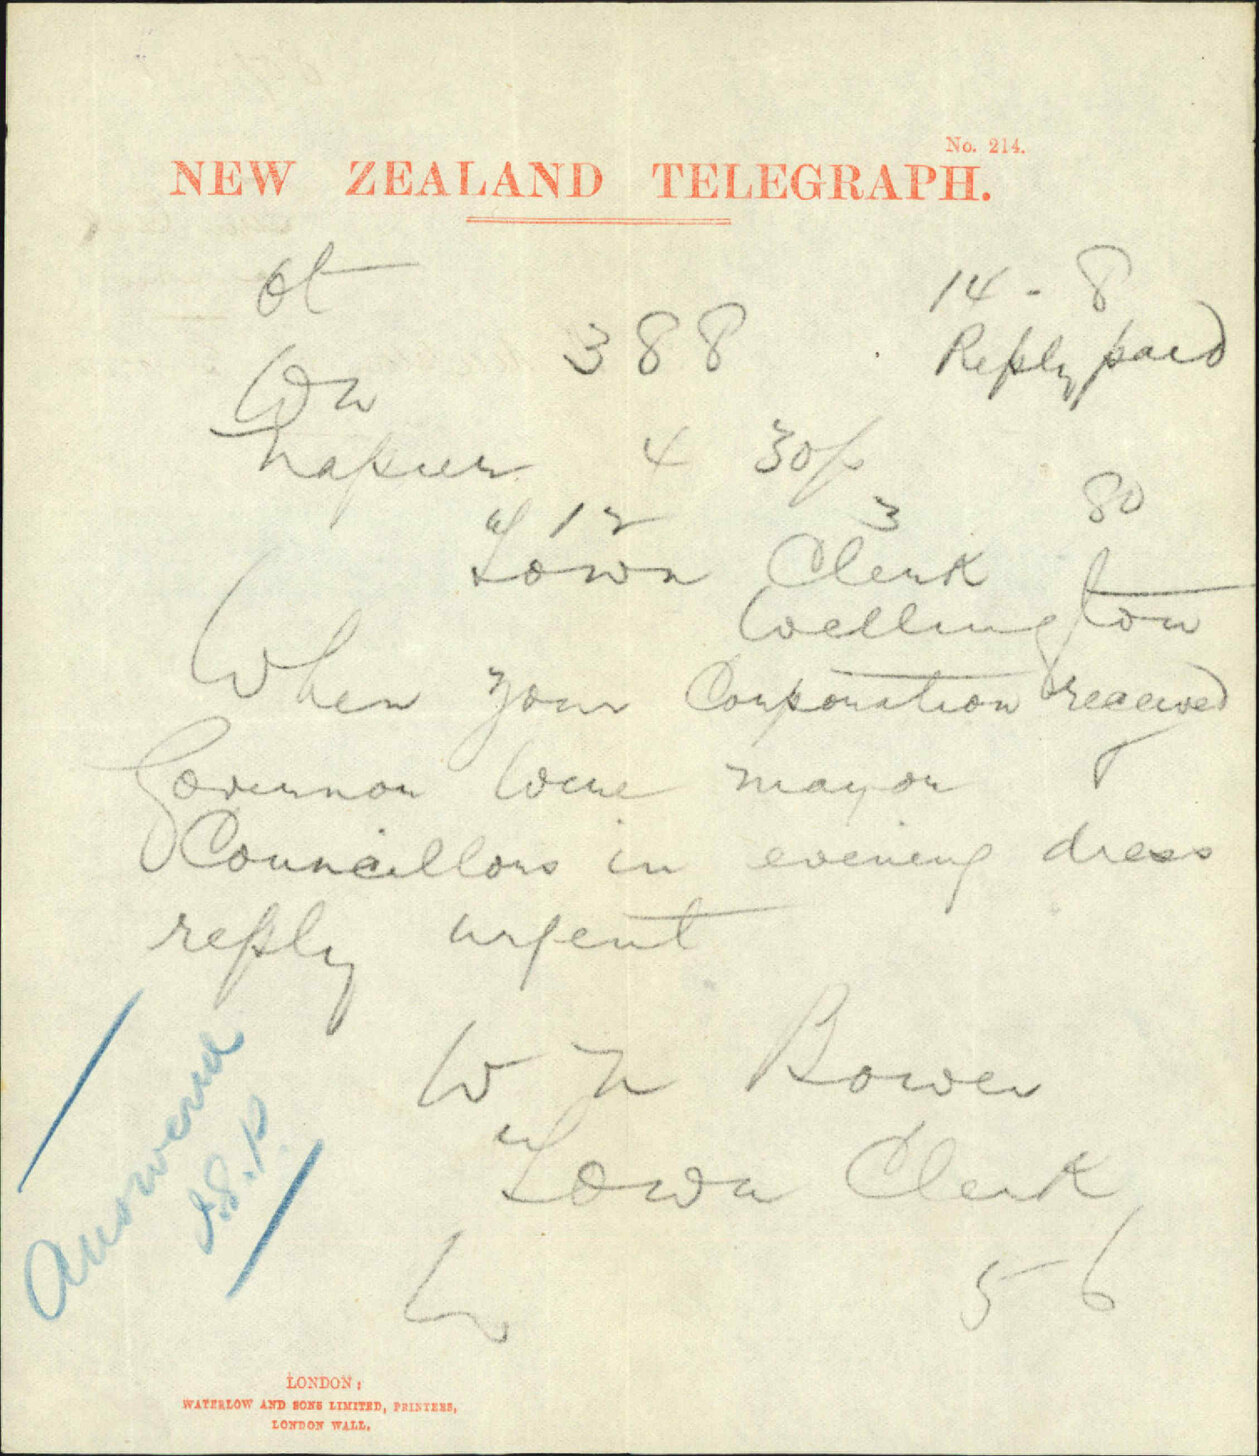 No. 214.
NEW ZEALAND TELEGRAPH.
Ot
14 - 8
Wn 388 Reply paid
Napier 4 30p
12 3 80
Town Clerk
Wellington
When your Corporation received
Governor were mayor
Councillors in evening dress
reply urgent
W N Bower
Town Clerk
5 6
Answered
J.S.P.
LONDON:
WATERLOW AND SONS LIMITED, PRINTERS,
LONDON WALL.